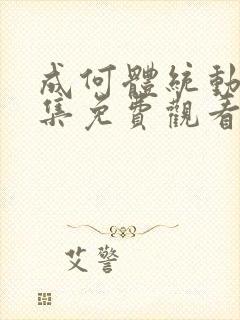 成何體統動
集免費觀看
艾警